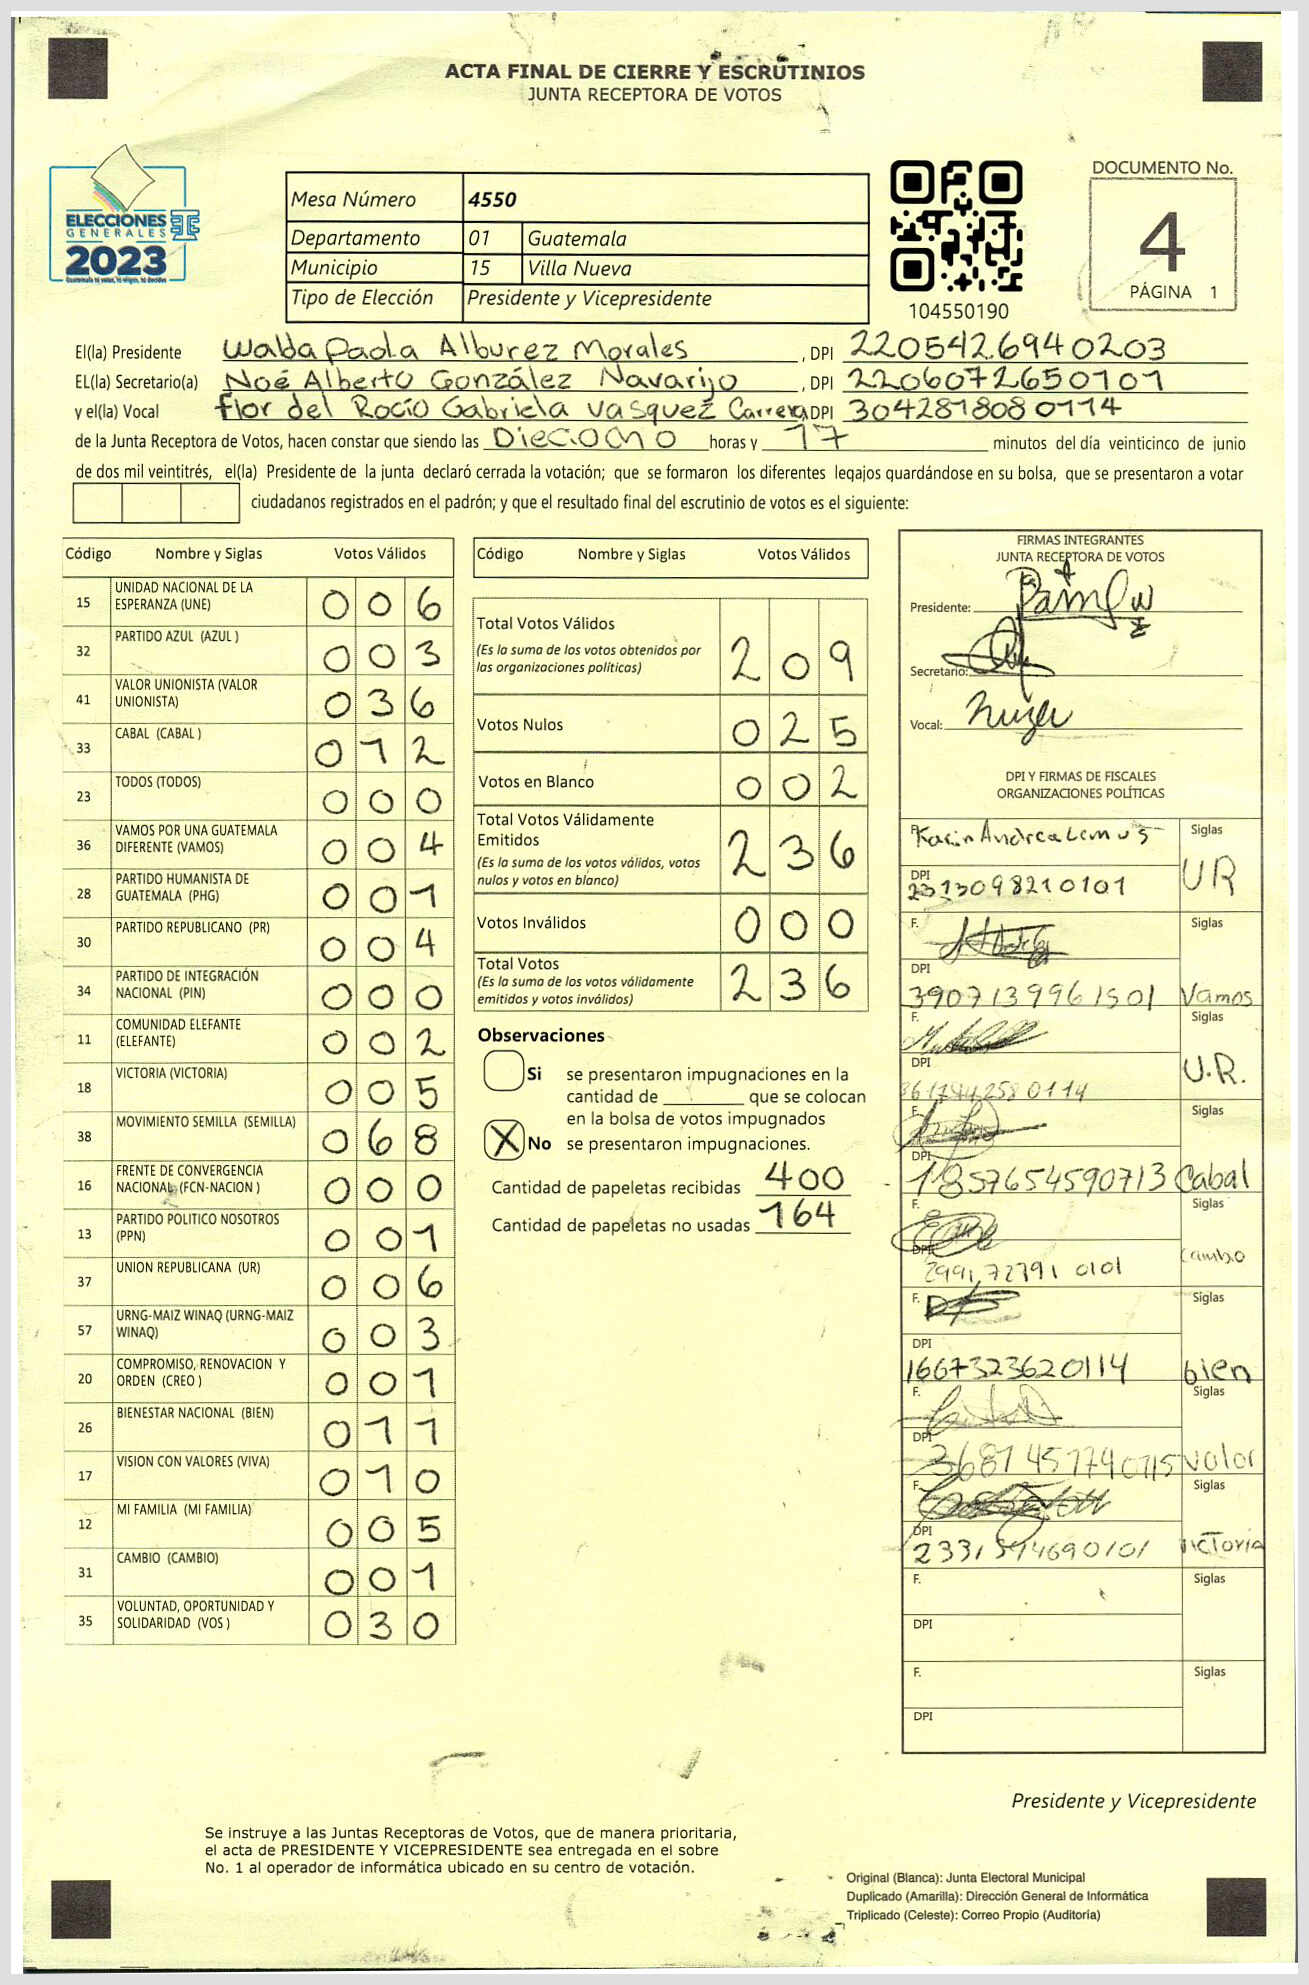 ACTA FINAL DE CIERRE Y ESCRUTINIOS
JUNTA RECEPTORA DE VOTOS
ELECCIONES
GENERALES
2023
Mesa Número 4550
Departamento 01 Guatemala
Municipio 15 Villa Nueva
Tipo de Elección Presidente y Vicepresidente
104550190
DOCUMENTO No.
4
PÁGINA 1
El(la) Presidente Walda Paola Alburez Morales , DPI 2205426940203
EL(la) Secretario(a) Noé Alberto González Navarijo , DPI 2206072650101
y el(la) Vocal flor del Rocío Gabriela Vasquez Carrera, DPI 3042818080114
de la Junta Receptora de Votos, hacen constar que siendo las Dieciocho horas y 17 minutos del día veinticinco de junio
de dos mil veintitrés, el(la) Presidente de la junta declaró cerrada la votación; que se formaron los diferentes legajos guardándose en su bolsa, que se presentaron a votar
ciudadanos registrados en el padrón; y que el resultado final del escrutinio de votos es el siguiente:
Código Nombre y Siglas Votos Válidos
15 UNIDAD NACIONAL DE LA ESPERANZA (UNE) 006
32 PARTIDO AZUL (AZUL ) 003
41 VALOR UNIONISTA (VALOR UNIONISTA) 036
33 CABAL (CABAL ) 012
23 TODOS (TODOS) 000
36 VAMOS POR UNA GUATEMALA DIFERENTE (VAMOS) 004
28 PARTIDO HUMANISTA DE GUATEMALA (PHG) 001
30 PARTIDO REPUBLICANO (PR) 004
34 PARTIDO DE INTEGRACIÓN NACIONAL (PIN) 000
11 COMUNIDAD ELEFANTE (ELEFANTE) 002
18 VICTORIA (VICTORIA) 005
38 MOVIMIENTO SEMILLA (SEMILLA) 068
16 FRENTE DE CONVERGENCIA NACIONAL (FCN-NACION ) 000
13 PARTIDO POLITICO NOSOTROS (PPN) 001
37 UNION REPUBLICANA (UR) 006
57 URNG-MAIZ WINAQ (URNG-MAIZ WINAQ) 003
20 COMPROMISO, RENOVACION Y ORDEN (CREO ) 001
26 BIENESTAR NACIONAL (BIEN) 011
17 VISION CON VALORES (VIVA) 010
12 MI FAMILIA (MI FAMILIA) 005
31 CAMBIO (CAMBIO) 001
35 VOLUNTAD, OPORTUNIDAD Y SOLIDARIDAD (VOS ) 030
Código Nombre y Siglas Votos Válidos
Total Votos Válidos 209
(Es la suma de los votos obtenidos por
las organizaciones políticas)
Votos Nulos 025
Votos en Blanco 002
Total Votos Válidamente
Emitidos 236
(Es la suma de los votos válidos, votos
nulos y votos en blanco)
Votos Inválidos 000
Total Votos 236
(Es la suma de los votos válidamente
emitidos y votos inválidos)
Observaciones
Si se presentaron impugnaciones en la
cantidad de ________ que se colocan
en la bolsa de votos impugnados
X No se presentaron impugnaciones.
Cantidad de papeletas recibidas 400
Cantidad de papeletas no usadas 164
FIRMAS INTEGRANTES
JUNTA RECEPTORA DE VOTOS
Presidente:
Secretario:
Vocal:
DPI Y FIRMAS DE FISCALES
ORGANIZACIONES POLÍTICAS
F. Karin Andrea Lemus Siglas
DPI 2313098210101 UR
F. Siglas
DPI 3907139961501 Vamos
F. Siglas
DPI U.R.
F. Siglas
DPI 1857654590713 Cabal
F. Siglas
DPI 2991727910101 cambio
F. Siglas
DPI 1667323620114 bien
F. Siglas
DPI valor
F. Siglas
DPI victoria
F. Siglas
DPI
F. Siglas
DPI
Presidente y Vicepresidente
Se instruye a las Juntas Receptoras de Votos, que de manera prioritaria,
el acta de PRESIDENTE Y VICEPRESIDENTE sea entregada en el sobre
No. 1 al operador de informática ubicado en su centro de votación.
Original (Blanca): Junta Electoral Municipal
Duplicado (Amarilla): Dirección General de Informática
Triplicado (Celeste): Correo Propio (Auditoría)